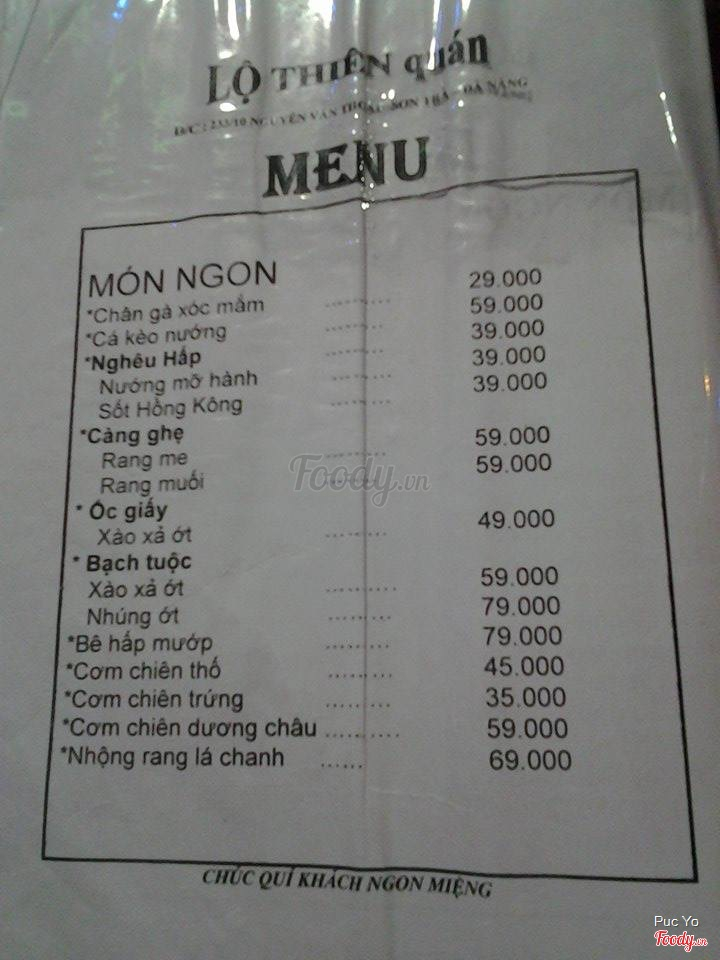 LỘ THIÊN quán
Đ/C : 233/10 NGUYỄN VĂN THOẠI - SƠN TRÀ - ĐÀ NẴNG
MENU
MÓN NGON
*Chân gà xóc mắm .......... 29.000
*Cá kèo nướng .......... 59.000
*Nghêu Hấp .......... 39.000
Nướng mỡ hành .......... 39.000
Sốt Hồng Kông .......... 39.000
*Càng ghẹ
Rang me .......... 59.000
Rang muối .......... 59.000
* Ốc giấy
Xào xả ớt .......... 49.000
* Bạch tuộc
Xào xả ớt .......... 59.000
Nhúng ớt .......... 79.000
*Bê hấp mướp .......... 79.000
*Cơm chiên thố .......... 45.000
*Cơm chiên trứng .......... 35.000
*Cơm chiên dương châu .......... 59.000
*Nhộng rang lá chanh ...... 69.000
CHÚC QUÍ KHÁCH NGON MIỆNG
Foody.vn
Puc Yo
Foody.vn